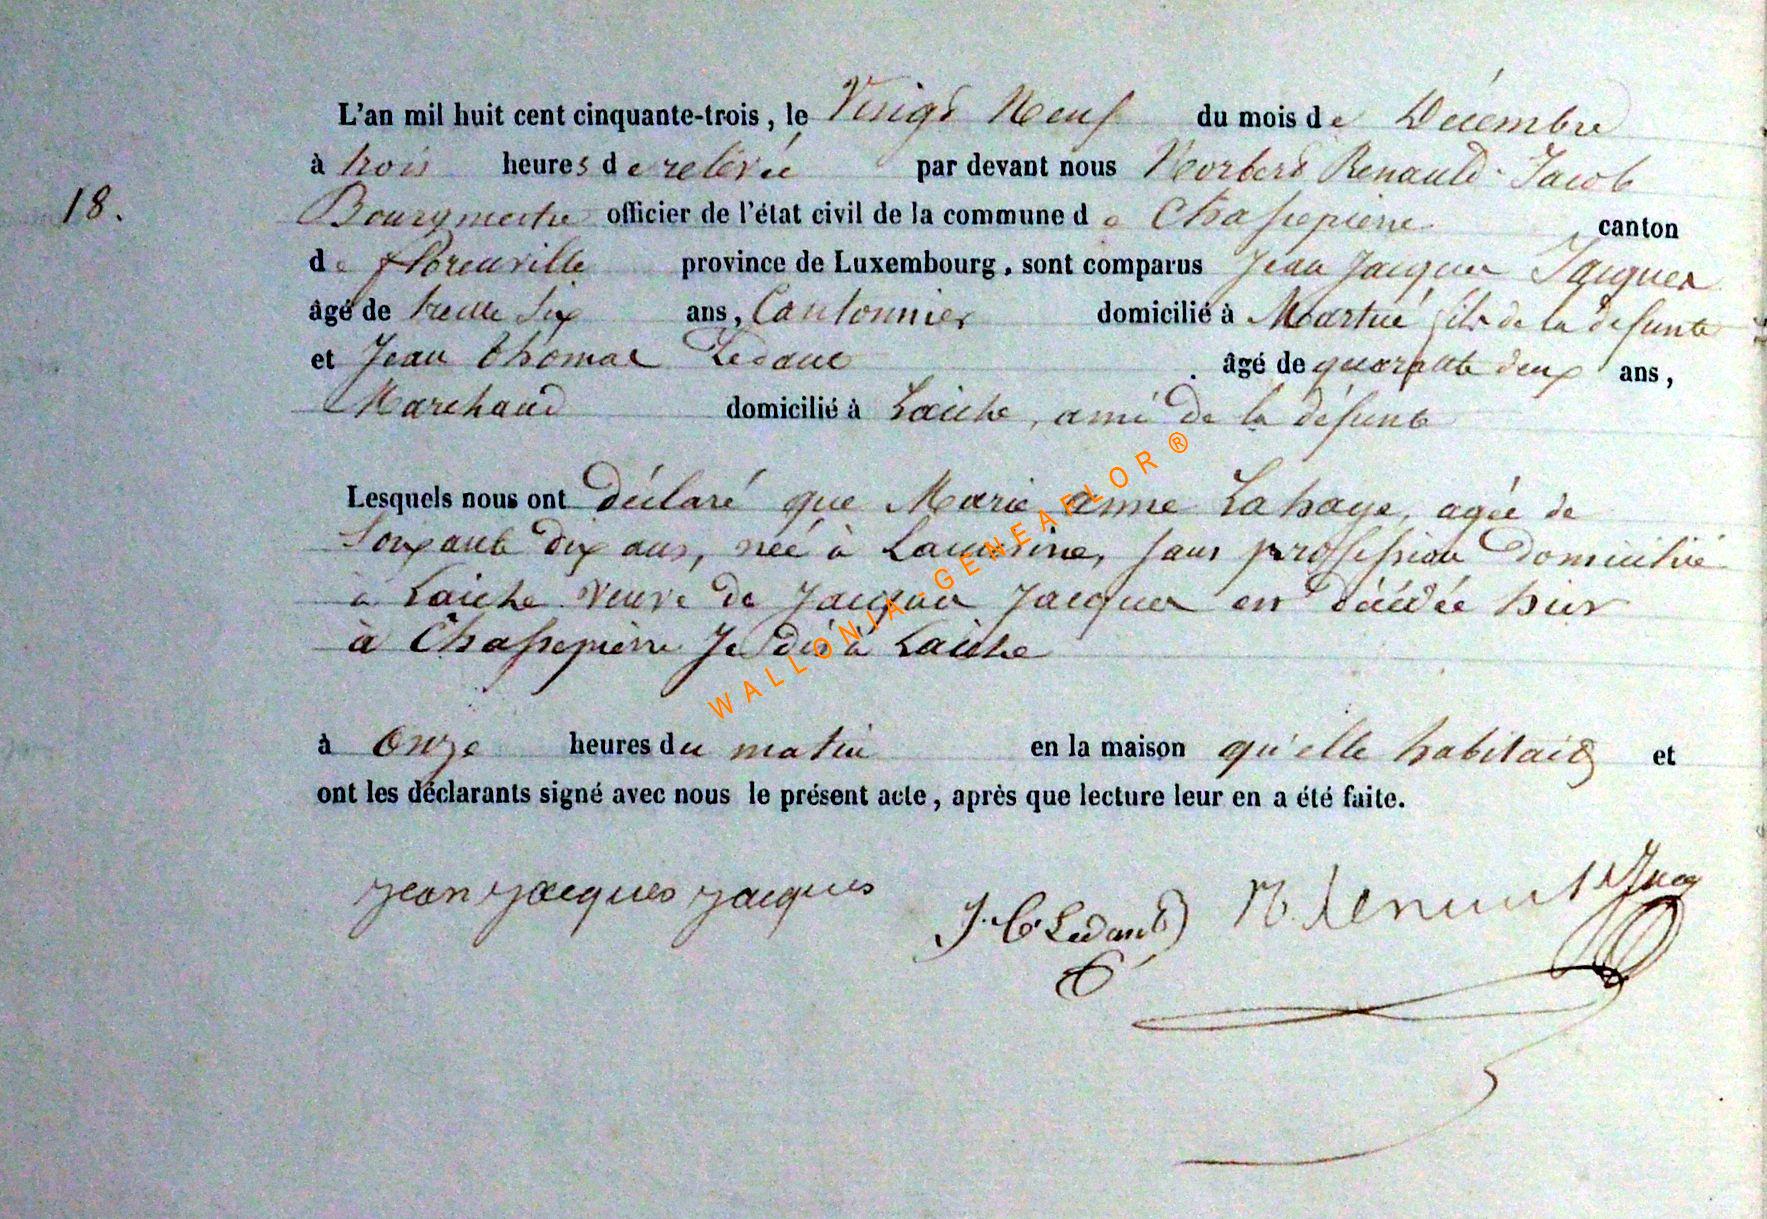 L'an mil huit cent cinquante-trois, le Vingt Neuf du mois de Décembre
à trois heures de relevée par devant nous Norbert Renauld Jacob
18.
Bourgmestre officier de l'état civil de la commune de Chassepierre canton
de florenville province de Luxembourg, sont comparus Jean Jacques Jacques
âgé de trente Six ans, Cantonnier domicilié à Martué fils de la défunte
et Jean thomas Ledant âgé de quarante deux ans,
Marchand domicilié à Laiche, ami de la défunte
Lesquels nous ont déclaré que Marie anne Lahaye, agée de
Soixante dix ans, née à sans proffession Domicilié
à Laiche Veuve de Jacques Jacques est décédée hier
à Chassepierre Je dis à Laiche
à onze heures du matin en la maison qu'elle habitait et
ont les déclarants signé avec nous le présent acte, après que lecture leur en a été faite.
jean jacques jacques
J. t. Ledant
WALLONIA-GENEAFLOR ®